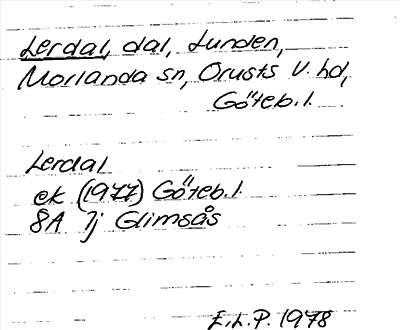 Lerdal, dal, Lunden,
Morlanda sn, Orusts V. hd,
Göteb. l.
Lerdal
ek (1977) Göteb. l.
8A 7j Glimsås
E.L.P. 1978